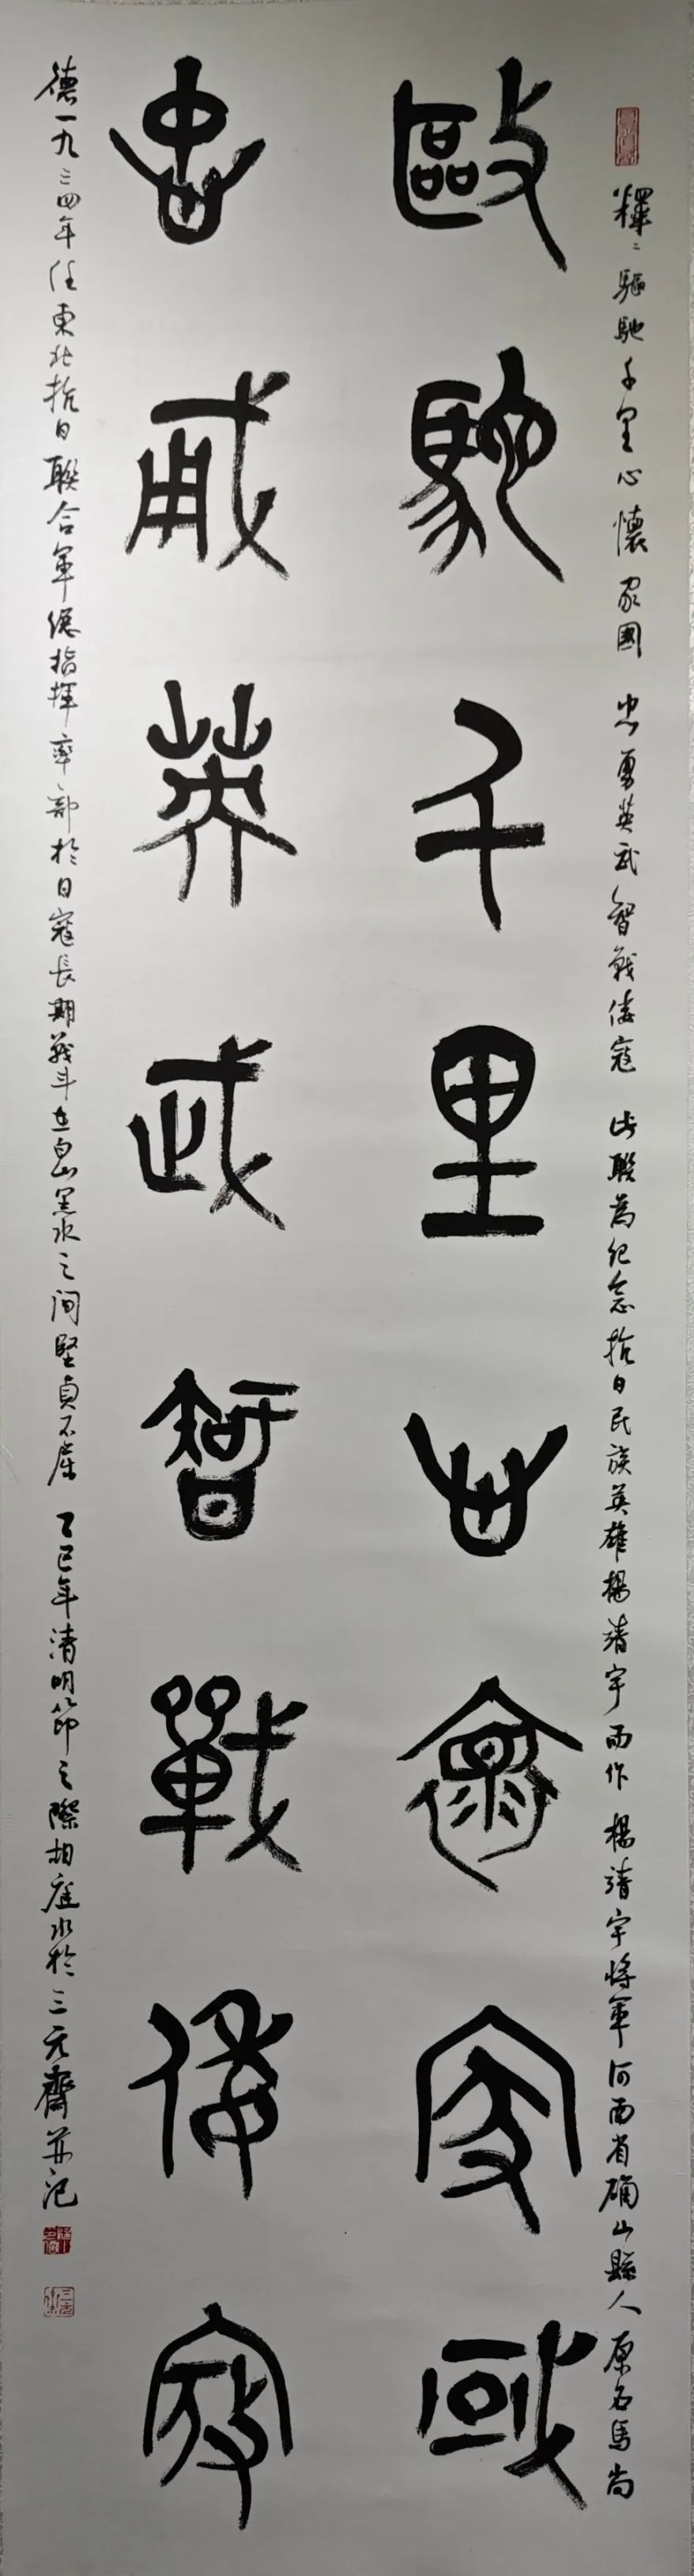 釋：驅馳千里心懷家國 忠勇英武智戰倭寇 此聯為紀念抗日民族英雄楊靖宇而作 楊靖宇將軍河南省确山縣人原名馬尚
敺馳千里心懷家國
忠勇英武智戰倭寇
德一九三四年任東北抗日聯合軍總指揮率部於日寇長期战斗在白山黑水之间堅貞不屈 乙巳年清明節之際柏崖水於三元齋并记